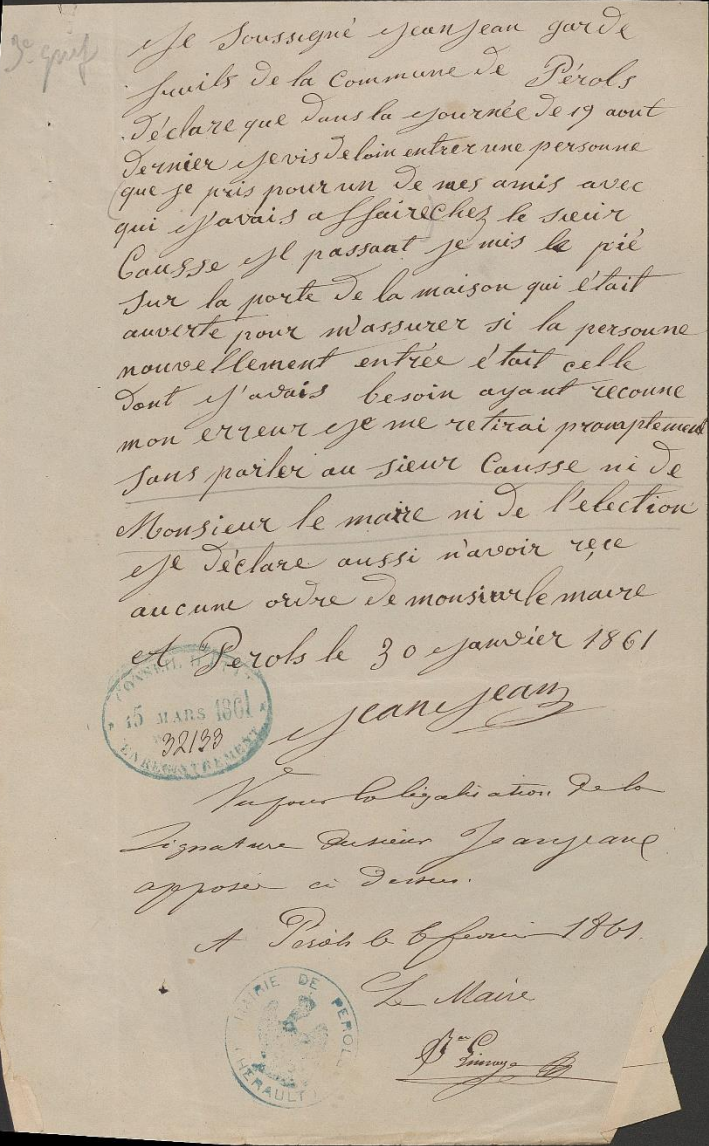 3e grief
Je Soussigné Jeanjean garde
fruils de la Commune de Pérols
déclare que dans la Journée de 19 aout
dernier Je vis de loin entrer une personne
que je pris pour un de mes amis avec
qui J'avais affaire chez le sieur
Causse Il passant je mis le pié
sur la porte de la maison qui était
auverte pour m'assurer si la personne
nouvellement entrée était celle
dont J'avais besoin ayant reconne
mon erreur Je me retirai promptement
sans parler au sieur Causse ni de
Monsieur le maire ni de l'election
Je déclare aussi n'avoir reçe
aucune ordre de monsieur le maire
A Pérols le 30 Janvier 1861
CONSEIL D'ETAT
15 MARS 1861
32133
ENREGISTREMENT
Jeanjean
Vu pour la légalisation de la
signature du sieur Jeanjean
apposée ci dessus.
A Pérols le 6 février 1861
Le Maire
MAIRIE DE PEROLS
HERAULT